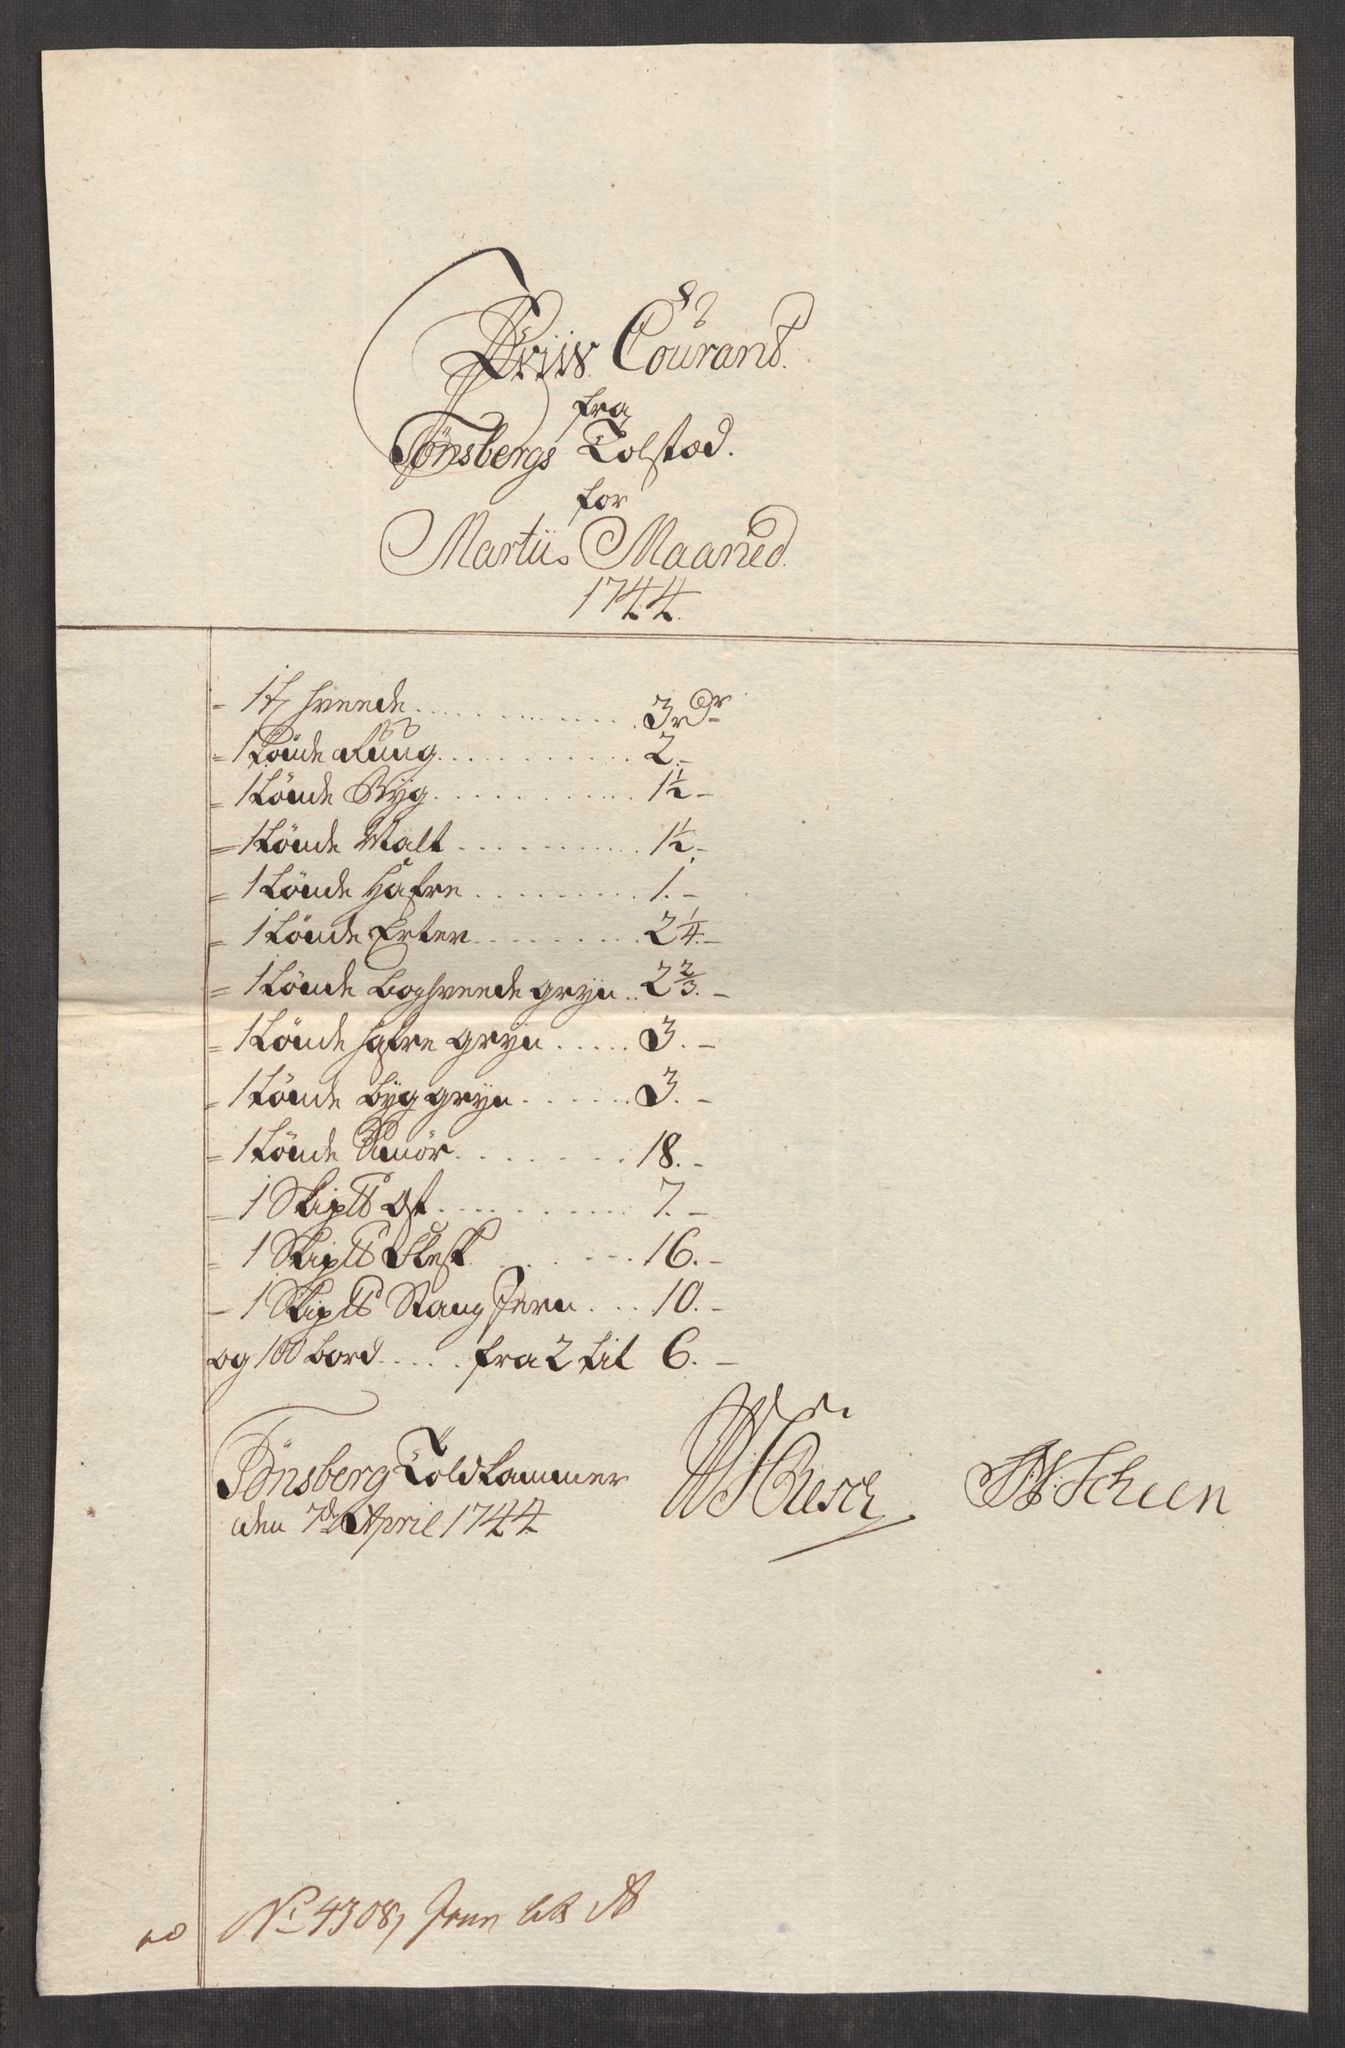 Priis Courant
fra
Tønsbergs Tolstød.
for
Martii Maaned.
1744.
- 1 tø hveede ............ 3 rdr
= 1 tønde Rüug ........... 2.-
= 1 tønde Byg ........... 1½-
= 1 tønde Malt .......... 1½.-
= 1 tønde Hafre ......... 1.-
= 1 tønde Erter ......... 2¼.-
= 1 tønde boghveede gryn .. 2⅔.-
= 1 tønde hafre gryn ..... 3.-
= 1 tønde byg gryn ...... 3.-
= 1 tønde Smør ........ 18.-
= 1 Skip℔ Ost ......... 7.-
= 1 Skip℔ Flesk ...... 16.-
- 1 Skip℔ Stang Jern ... 10.-
og 100 bord ..... fra 2 til 6.-
Tønsberg Toldkammer
den 7de April 1744
Büsch Scheen
No 4308,